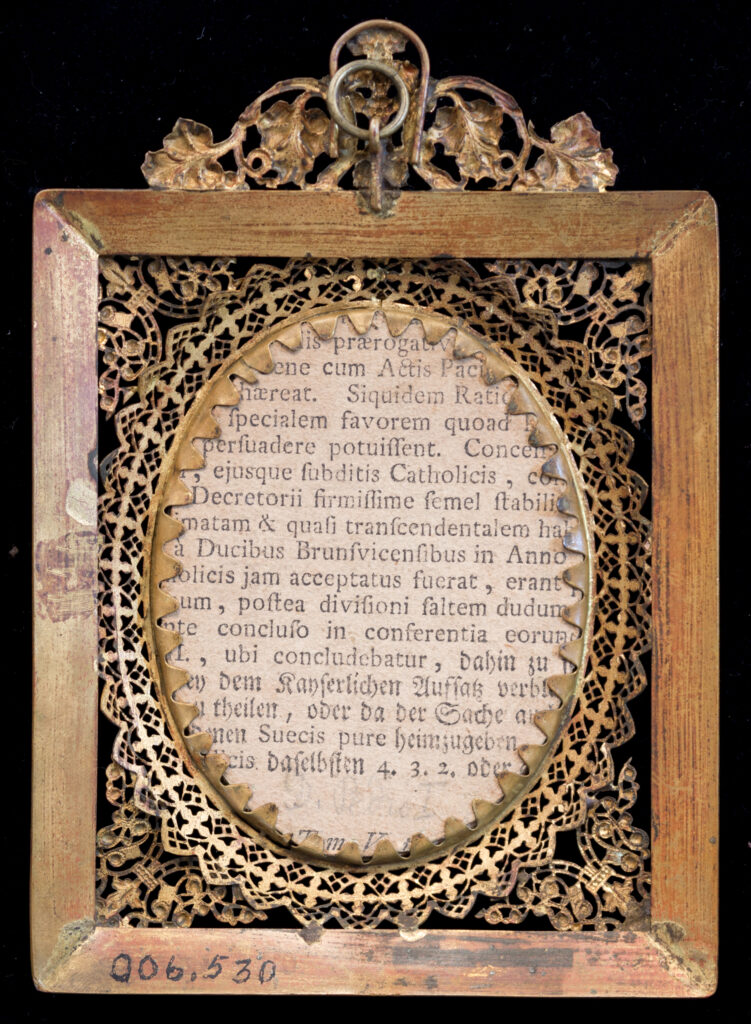 is prærogativ
ene cum Actis Paci
hæreat. Siquidem Ratio
ſpecialem favorem quoad
perſuadere potuiſſent. Concen
, ejusque ſubditis Catholicis , con
Decretorii firmiſſime ſemel ſtabili
matam & quaſi tranſcendentalem ha
à Ducibus Brunſvicenſibus in Anno
olicis jam acceptatus fuerat , erant
um , poſtea diviſioni ſaltem dudum
nte concluſo in conferentia eorun
I. , ubi concludebatur , dahin zu
ey dem Kayſerlichen Aufſatz verbl
u theilen , oder da der Sache a
enen Suecis pure heimzugeben
licis daſelbſten 4. 3. 2. oder
006.530